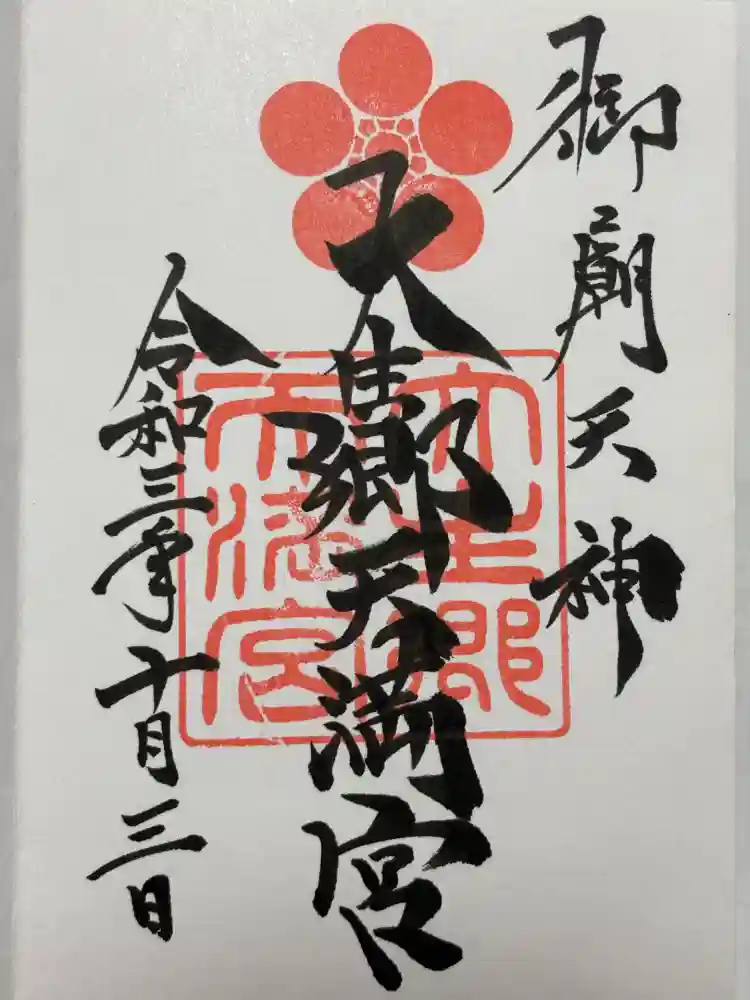 御廟天神
大生郷天満宮
令和三年十月三日
大生郷
天満宮